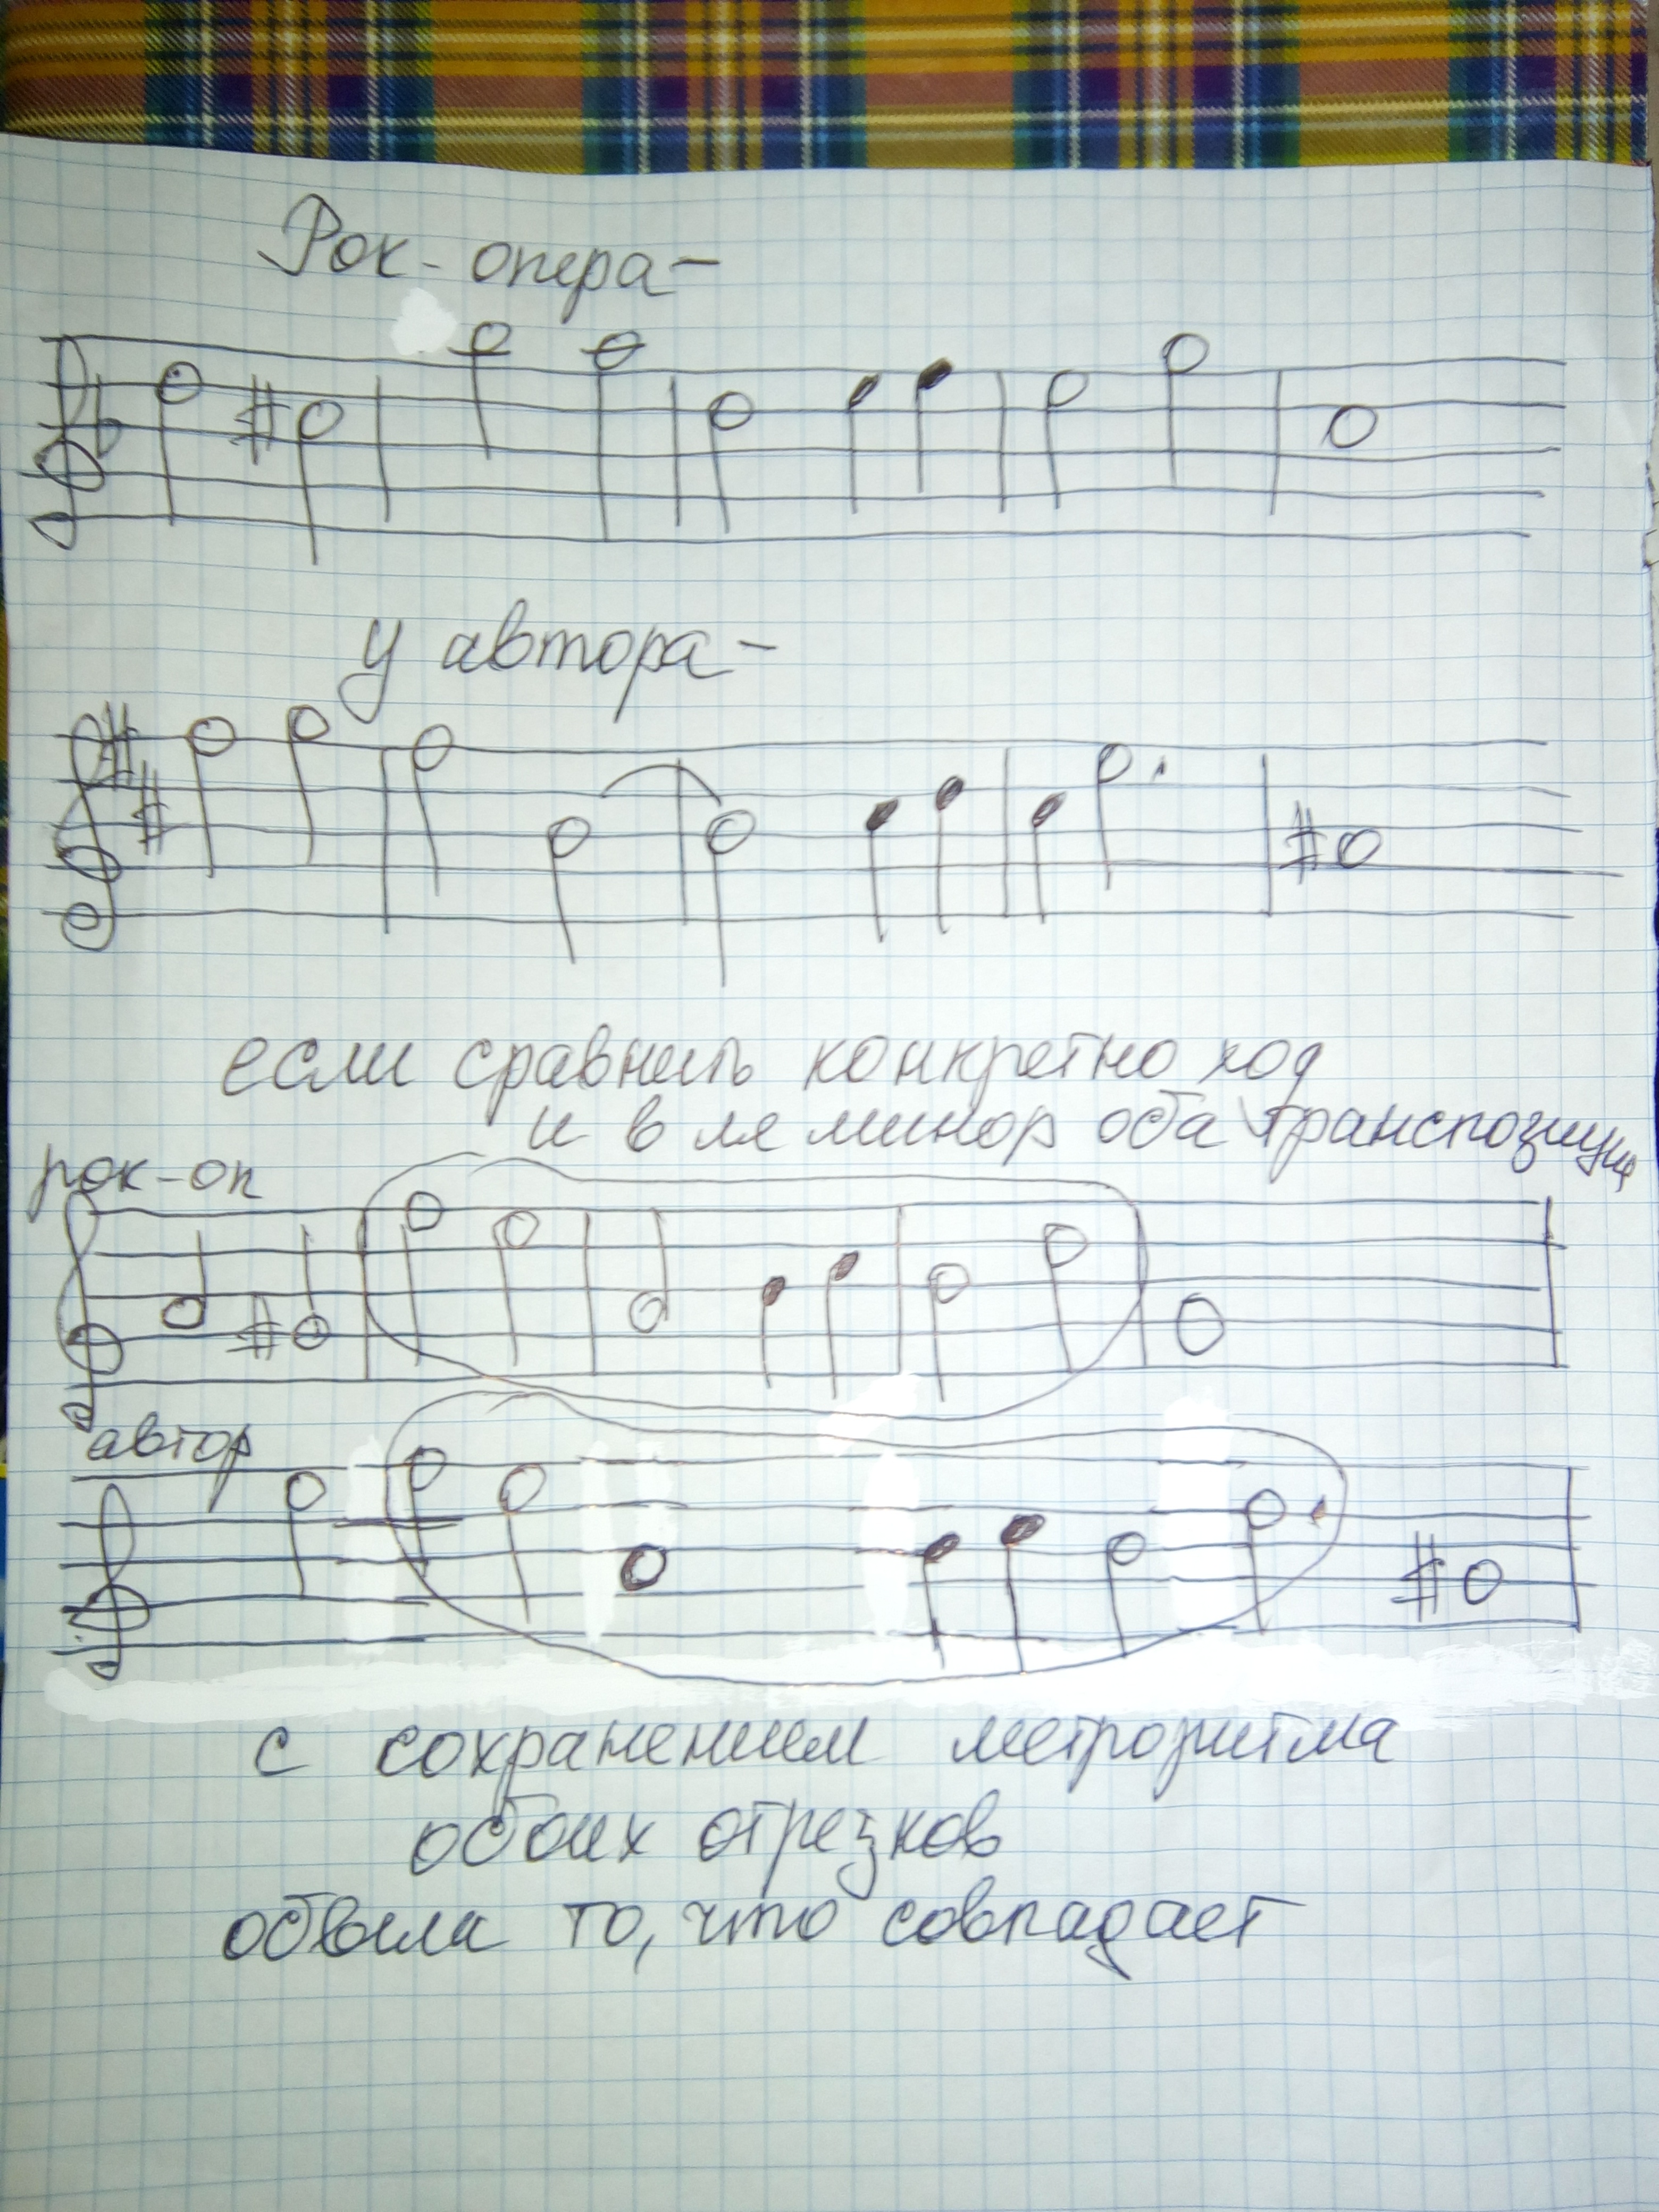 Рок-опера-
у автора-
если сравнить конкретно ход
и в ля минор оба транспозиции
рок-оп
автор
с сохранением метроритма
обоих отрезков
обвела то, что совпадает